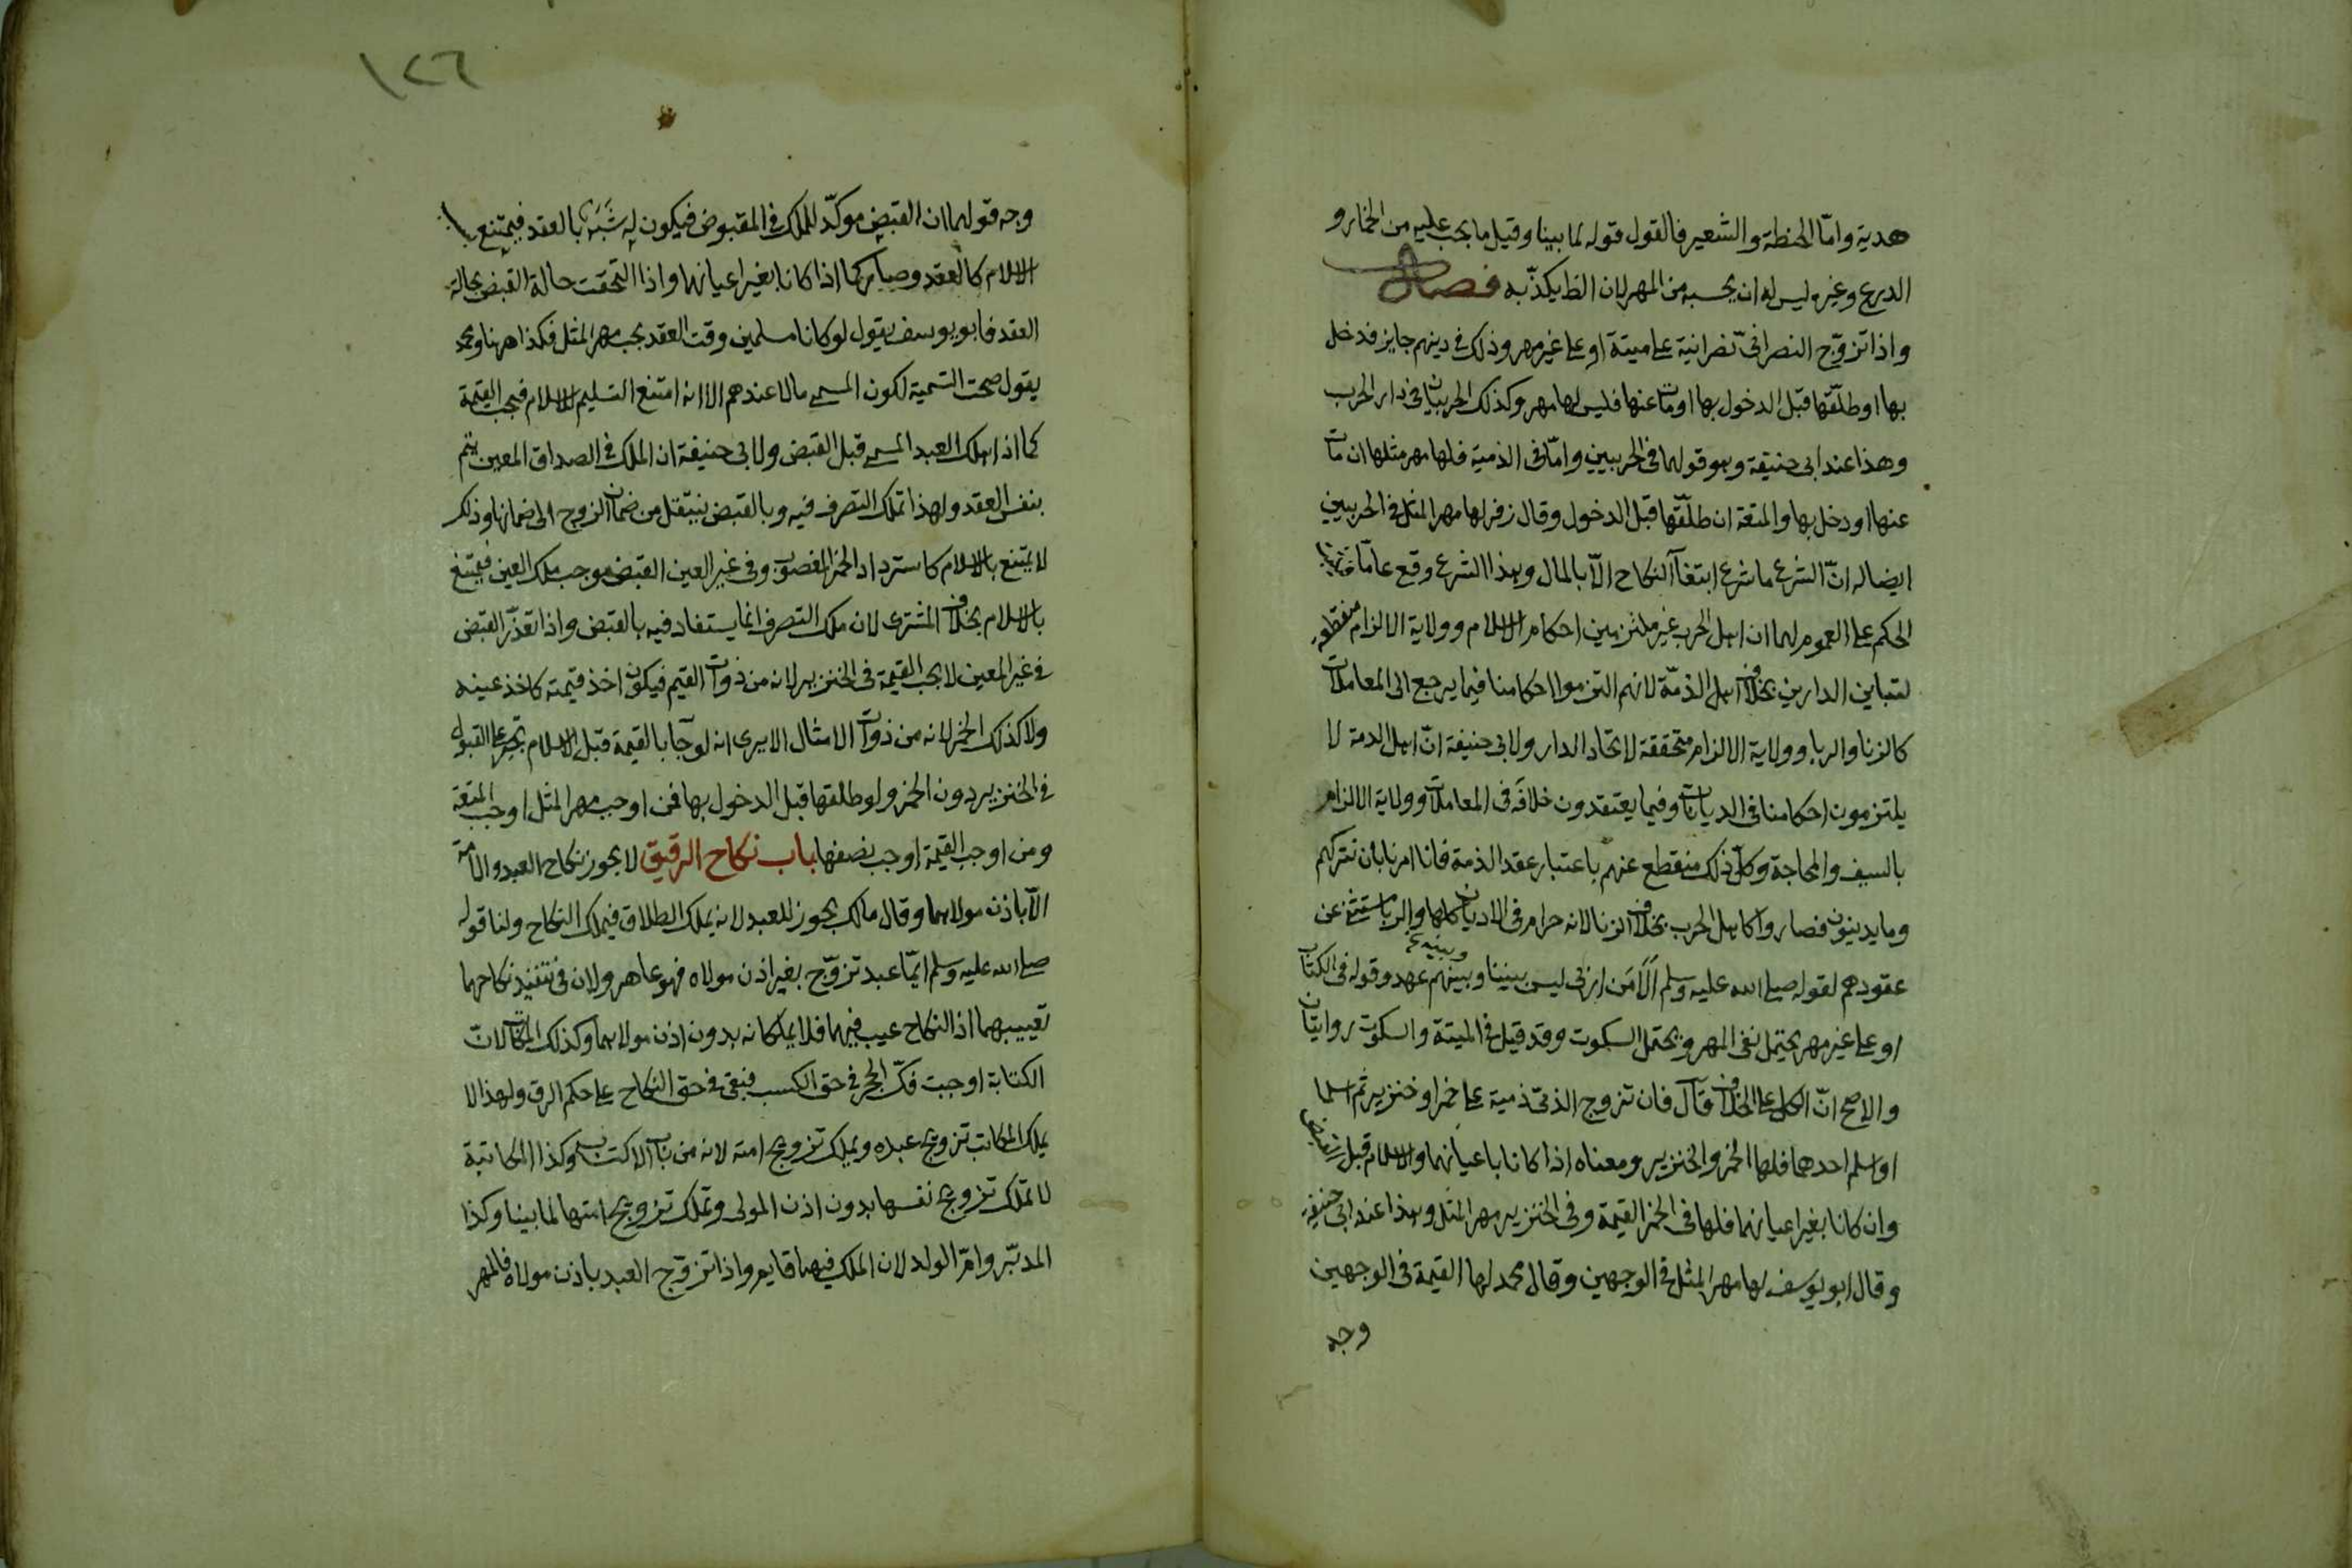 هدية واما الحنطة والشعير فالقول قوله لما بينا وقيل ما يجب عليه من الخمار و
الدرع وغيره ليس له ان يحسبه من المهر لان الظ يكذبه فصل
واذا تزوّج النصرانىّ نصرانية على ميتة او على غير مهر وذلك فى دينهم جايز فدخل
بها او طلّقها قبل الدخول بها او مات عنها فليس لها مهر وكذلك الحربيان فى دار الحرب
وهذا عند ابى حنيفة وهو قولهما فى الحربيين وامّا فى الذمية فلها مهر مثلها ان مات
عنها او دخل بها والمتعة ان طلّقها قبل الدخول وقال زفر لها مهر المثل فى الحربيين
ايضا له انّ الشرع ما شرع ابتغآ النكاح الّا بالمال وهذا الشرع وقع عامّا فثبت
الحكم على العموم لهما ان اهل الحرب غير ملتزمين احكام الاسلام وولاية الالزام منقطعة
لتباين الدارين بخلاف اهل الذمّة لانهم التزموا احكامنا فيما يرجع الى المعاملات
كالزنا والربا وولاية الالزام متحققة لاتحاد الدار ولابى حنيفة انّ اهل الدمة لا
يلتزمون احكامنا فى الديانات وفيما يعتقدون خلافه فى المعاملات وولاية الالزام
بالسيف والمحاجة وكل ذلك منقطع عنهم باعتبار عقد الذمة فانا امرنا بان نتركهم
وما يدينون فصاروا كاهل الحرب بخلاف الزنا لانه حرام فى الاديان كلها والربا مستثنى عن
عقودهم لقوله صلى الله عليه وسلم اَلَا مَن اربى ليس بيننا وبينهم عهد وقوله فى الكتاب
وبينه
او على غير مهر يحتمل نفى المهر ويحتمل السكوت وقد قيل فى الميتة والسكوت روايتان
والاصح انّ الكل على الخلاف قال فان تزوج الذمّى ذمية على خمر او خنزير ثم اسلما
او اسلم احدهما فلها الخمر والخنزير ومعناه اذا كانا باعيانهما والاسلام قبل القبض
وان كانا بغير اعيانهما فلها فى الخمر القيمة وفى الخنزير مهر المثل وهذا عند ابى حنيفة
وقال ابو يوسف لها مهر المثل فى الوجهين وقال محمد لها القيمة فى الوجهين
وجه
١٢٦
وجه قولهما ان القبض موكّد للملك فى المقبوض فيكون له شَبَهٌ بالعقد فيمتنع
الاسلام كالعقد وصار كما اذا كانا بغير اعيانهما واذا التحقت حالة القبض بحالة
العقد فابو يوسف يقول لو كانا مسلمين وقت العقد يجب مهر المثل فكذا ههنا ومحمد
يقول صحت التسمية لكون المسمى مالا عندهم الا انه امتنع التسليم للاسلام فيجب القيمة
كما اذا هلك العبد المسمى قبل القبض ولابى حنيفة ان الملك فى الصداق المعين يتم
بنفس العقد ولهذا تملك التصرف فيه وبالقبض ينتقل من ضمان الزوج الى ضمانها وذلك
لا يمتنع بالاسلام كاسترداد الخمر المغصوب وفى غير العين القبض موجب ملك العين فيمتنع
بالاسلام بخلاف المشترى لان ملك التصرف انما يستفاد فيه بالقبض واذا تعذّر القبض
فى غير المعين لا يجب القيمة فى الخنزير لانه من ذوات القيم فيكون اخذ قيمته كاخذ عينه
ولا كذلك الخمر لانه من ذوات الامثال الا يرى انه لو جآ بالقيمة قبل الاسلام تجبر على القبول
فى الخنزير دون الخمر ولو طلقها قبل الدخول بها فمن اوجب مهر المثل اوجب المتعة
ومن اوجب القيمة اوجب نصفها باب نكاح الرقيق لا يجوز نكاح العبد والامة
الّا باذن مولاهما وقال مالك يجوز للعبد لانه يملك الطلاق فيملك النكاح ولنا قوله
صلى الله عليه وسلم ايّما عبد تزوّج بغير اذن مولاه فهو عاهر ولان فى تنفيذ نكاحهما
تعييبهما اذ النكاح عيب فيهما فلا يملكانه بدون اذن مولاهما وكذلك المكاتب لانّ
الكتابة اوجبت فكّ الحجر فى حق الكسب فبقى فى حق النكاح على حكم الرق ولهذا لا
يملك المكاتب تزويج عبده ويملك تزويج امته لانه من باب الاكتساب وكذا المكاتبة
لا تملك تزويج نفسها بدون اذن المولى وتملك تزويج امتها لما بينا وكذا
المدبّر وامّ الولد لان الملك فيهما قايم واذا تزوّج العبد باذن مولاه فالمهر